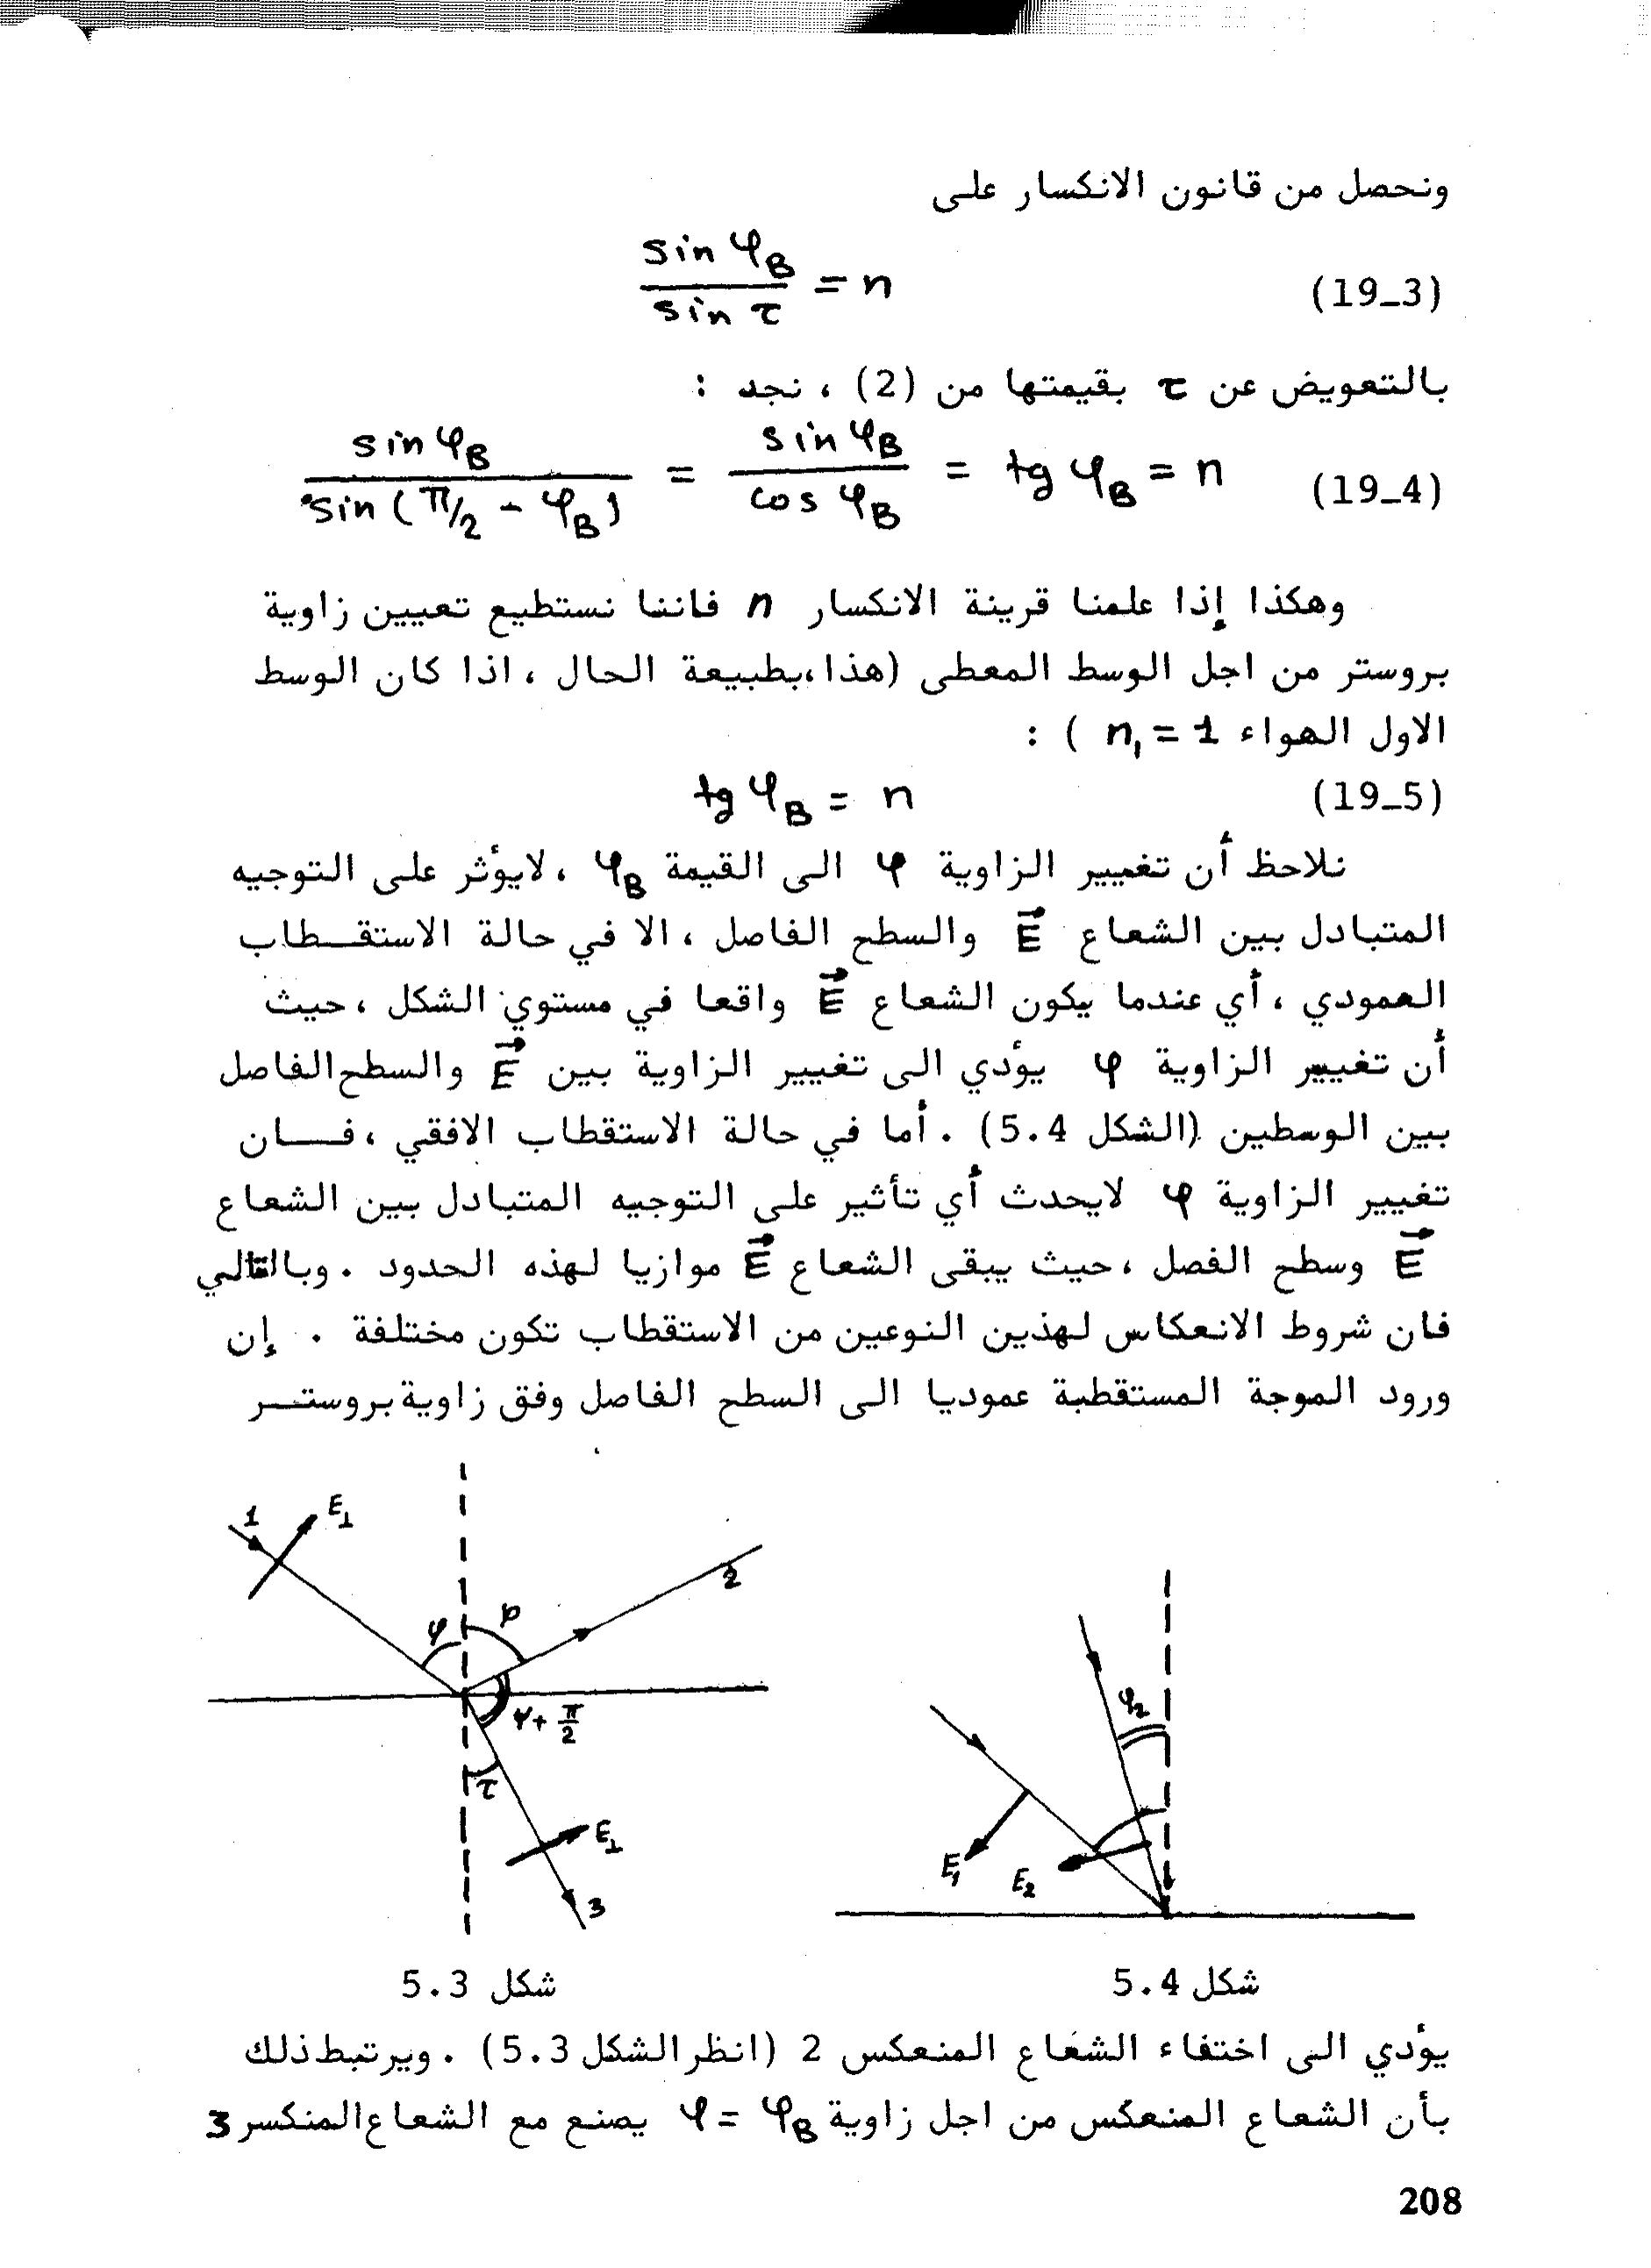 ونحصل من قانون الانكسار على
sin φB / sin τ = n (19_3)
بالتعويض عن τ بقيمتها من (2) ، نجد :
sin φB / sin (π/2 - φB) = sin φB / cos φB = tg φB = n (19_4)
وهكذا إذا علمنا قرينة الانكسار n فاننا نستطيع تعيين زاوية
بروستر من اجل الوسط المعطى (هذا،بطبيعة الحال ، اذا كان الوسط
الاول الهواء n₁ = 1 ) :
tg φB = n (19_5)
نلاحظ أن تغيير الزاوية φ الى القيمة φB ، لايؤثر على التوجيه
المتبادل بين الشعاع E⃗ والسطح الفاصل ، الا في حالة الاستقـطاب
العمودي ، أي عندما يكون الشعاع E⃗ واقعا في مستوي الشكل ، حيث
أن تغيير الزاوية φ يؤدي الى تغيير الزاوية بين E⃗ والسطح الفاصل
بين الوسطين (الشكل 5.4) . أما في حالة الاستقطاب الافقي ، فــان
تغيير الزاوية φ لايحدث أي تأثير على التوجيه المتبادل بين الشعاع
E⃗ وسطح الفصل ، حيث يبقى الشعاع E⃗ موازيا لهذه الحدود . وبالتالي
فان شروط الانعكاس لهذين النوعين من الاستقطاب تكون مختلفة . إن
ورود الموجة المستقطبة عموديا الى السطح الفاصل وفق زاوية بروستــر
1 E⊥
2
φ φ
φ + π/2
τ
E⊥
3
φ₂
E₁ E₂
شكل 5.3
شكل 5.4
يؤدي الى اختفاء الشعاع المنعكس 2 (انظر الشكل 5.3) . ويرتبط ذلك
بأن الشعاع المنعكس من اجل زاوية φ = φB يصنع مع الشعاع المنكسر 3
208